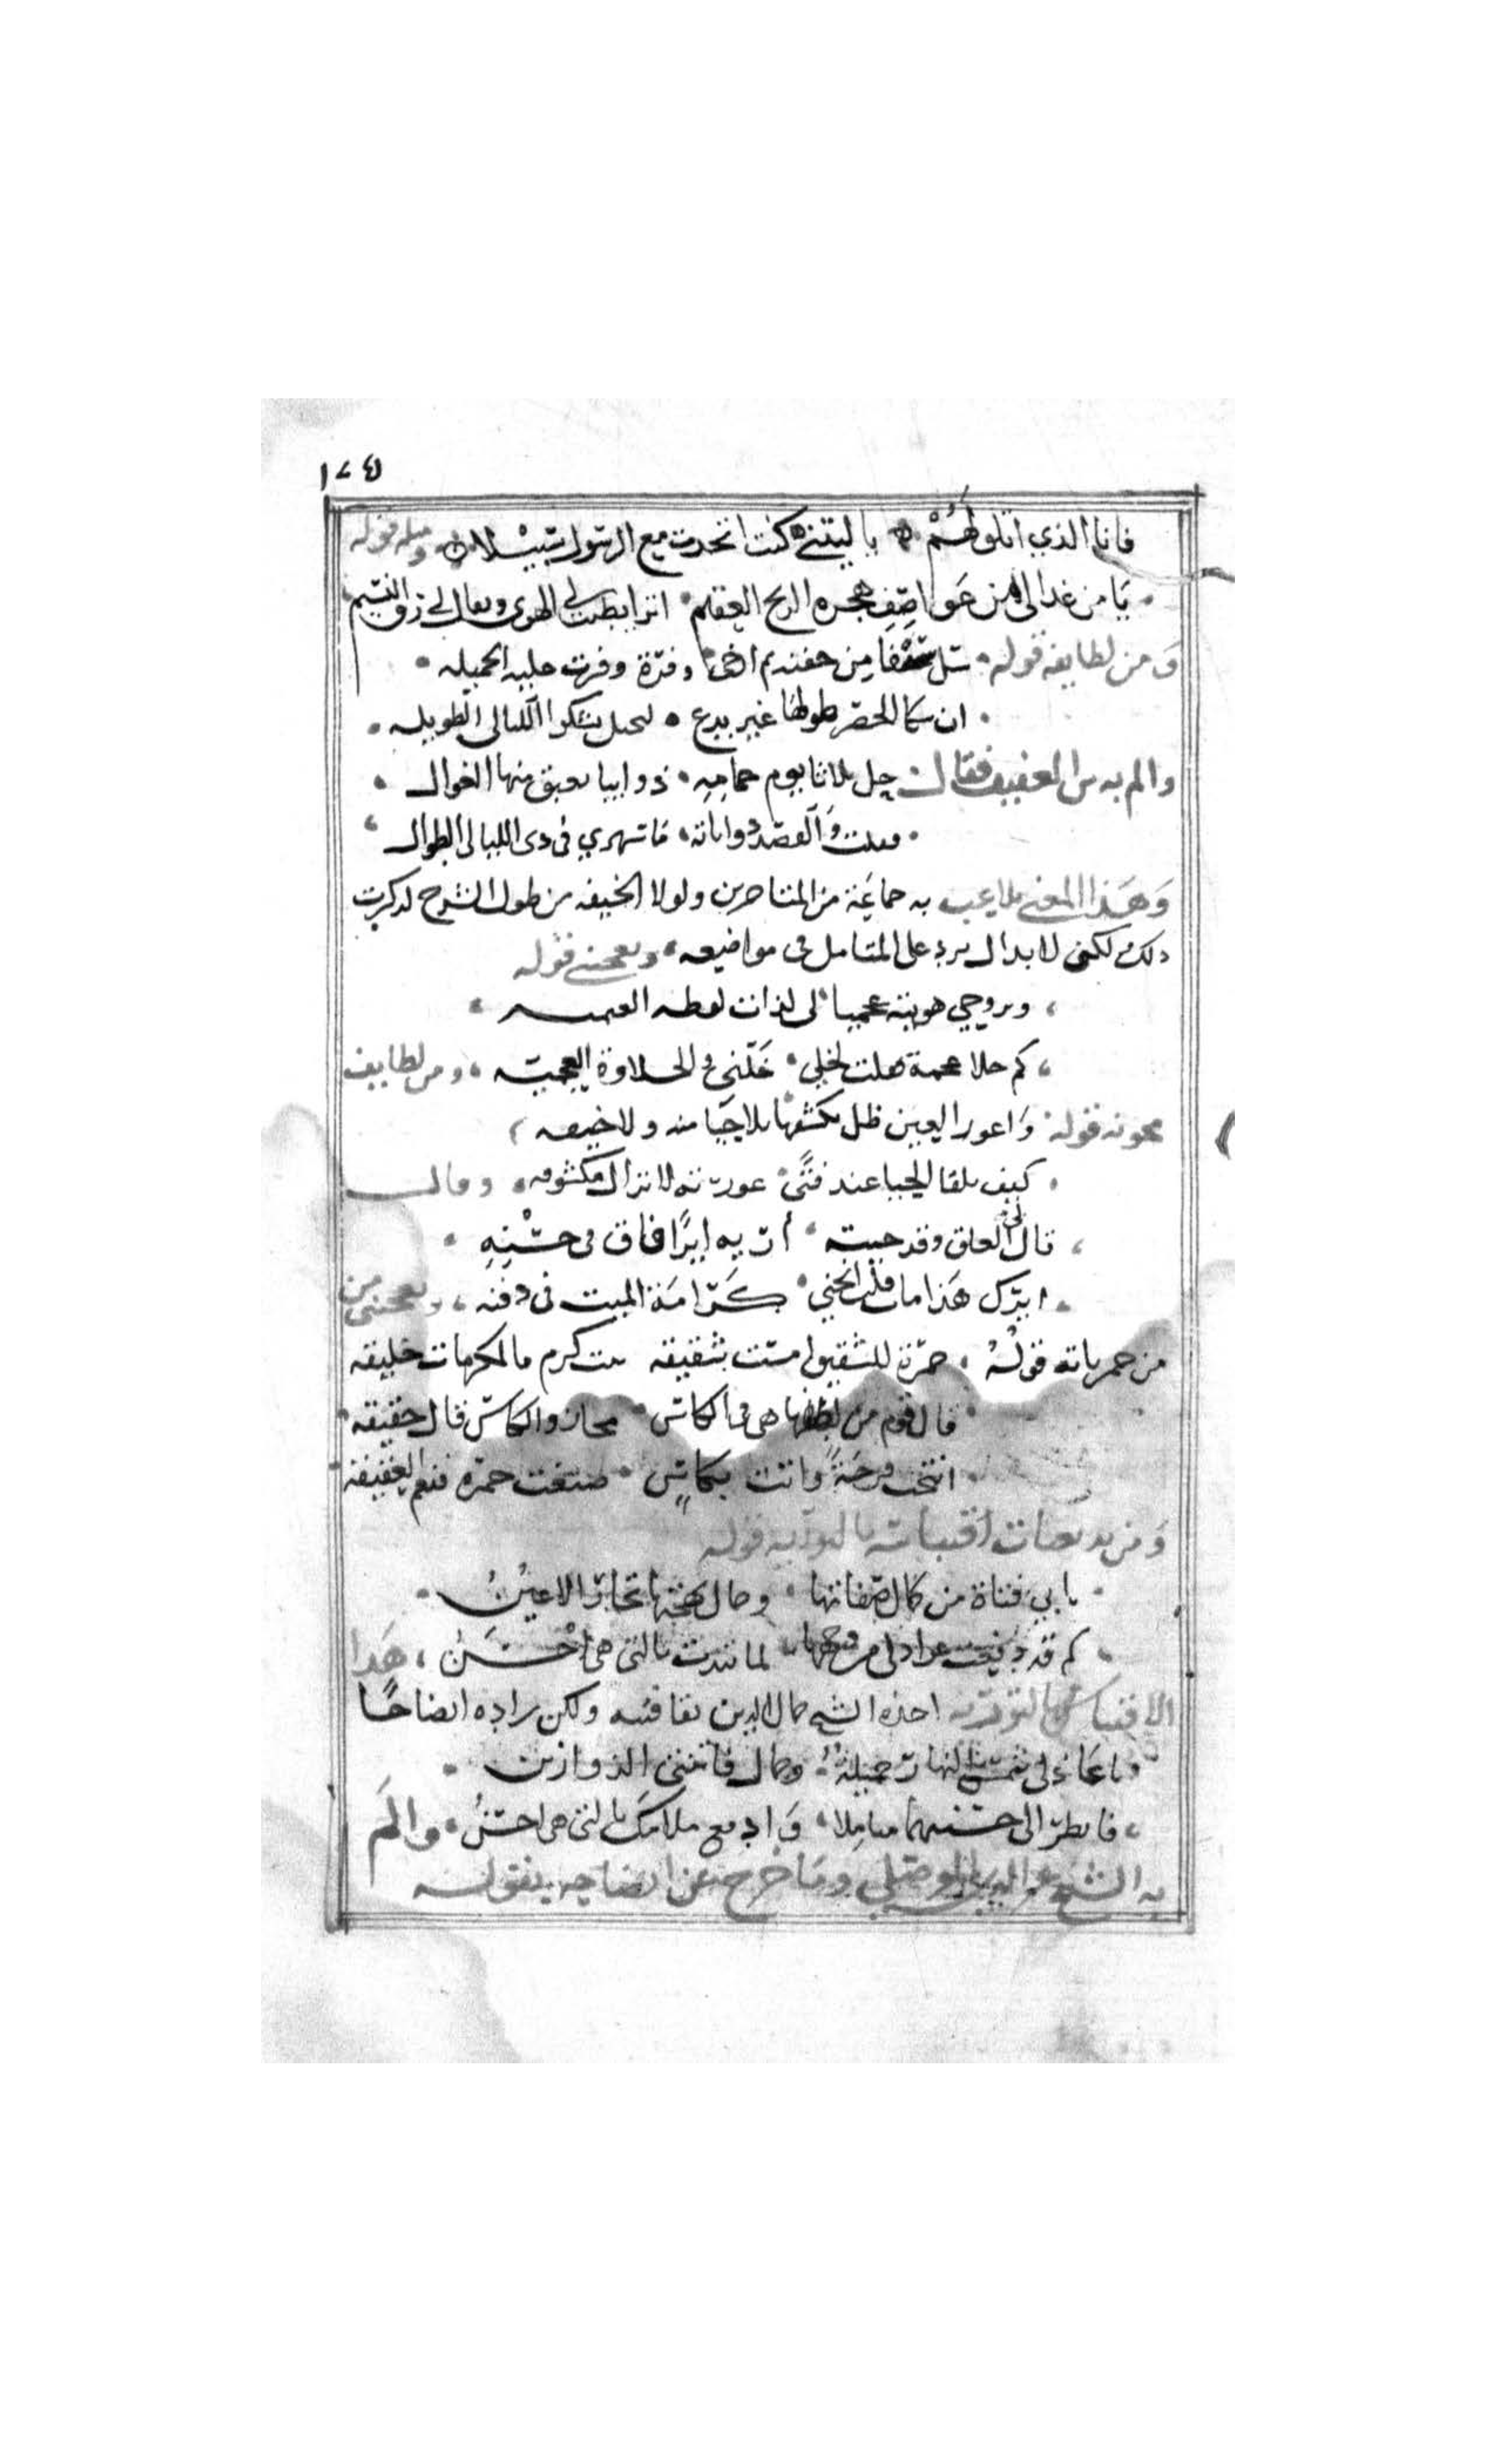 ١٧٤
فانا الذي اتلو لهم يا ليتني كنت اتخذت مع الرسول سبيلا ومثله قوله
يا من غدا لي من عواصف هجره الريح العقيم
ومن لطايفه قوله وفرت حليه الجميله
ان شكا الخصر طولها غير بدع لنحيل يشكوا الليالي الطويله
والم به العفيف فقال حل ثلاثا يوم حمامه ذوايبا يعبق منها الغوال
فقلت والقصد ذواباته فاسهري في دي الليالي الطوال
وهذا المعنى تلاعب به جماعة من المتاخرين ولولا الخيفه من طول الشرح لذكرت
ذلك لكن لا بد ان يرد على المتامل في مواضيعه ويعجبني قوله
وبروحي هويته عجميا لي لذات لفظه العجميه
كم حلا عجمة فقلت لخلي خلني والحلاوة العجميه ومن لطايف
مجونه قوله واعور العين ظل يكشفها بلا حيا منه ولا خيفه
كيف يلقا الحيا عند فتى عورته لا تزال مكشوفه وقال
قال لي العلق وقد جيته ايرا فاق في حسنه
ايرك هذا مات قلت انحني كرامة الميت في دفنه ويعجبني من
من خمرياته قوله خمرة للشقيق امست شقيقه بنت كرم بالمكرمات خليقه
قال قوم من لطفها هي في الكاس مجاز والكاس قال حقيقه
انتخت فرحة واتت بكاس صنعت خمره فنعم العقيقه
ومن بديعات اقتباساته بالتوريه قوله
بابي فتاة من كمال صفاتها وجمال بهجتها تحار الاعين
كم قد دفعت عواذلي عن وجهها لما تبدت بالتي هي احسن هذا
الاقتباس بالتوريه اخذه الشيخ جمال الدين بقافيته ولكن زاده ايضاحا
يا عاذلي شمس النهار جميلة وجمال فاتنتي الذ وازين
فانظر الى حسنيهما متاملا وادفع ملامك بالتي هي احسن والم
به الشيخ عز الدين الموصلي وما خرج عن ايضاحه بقوله